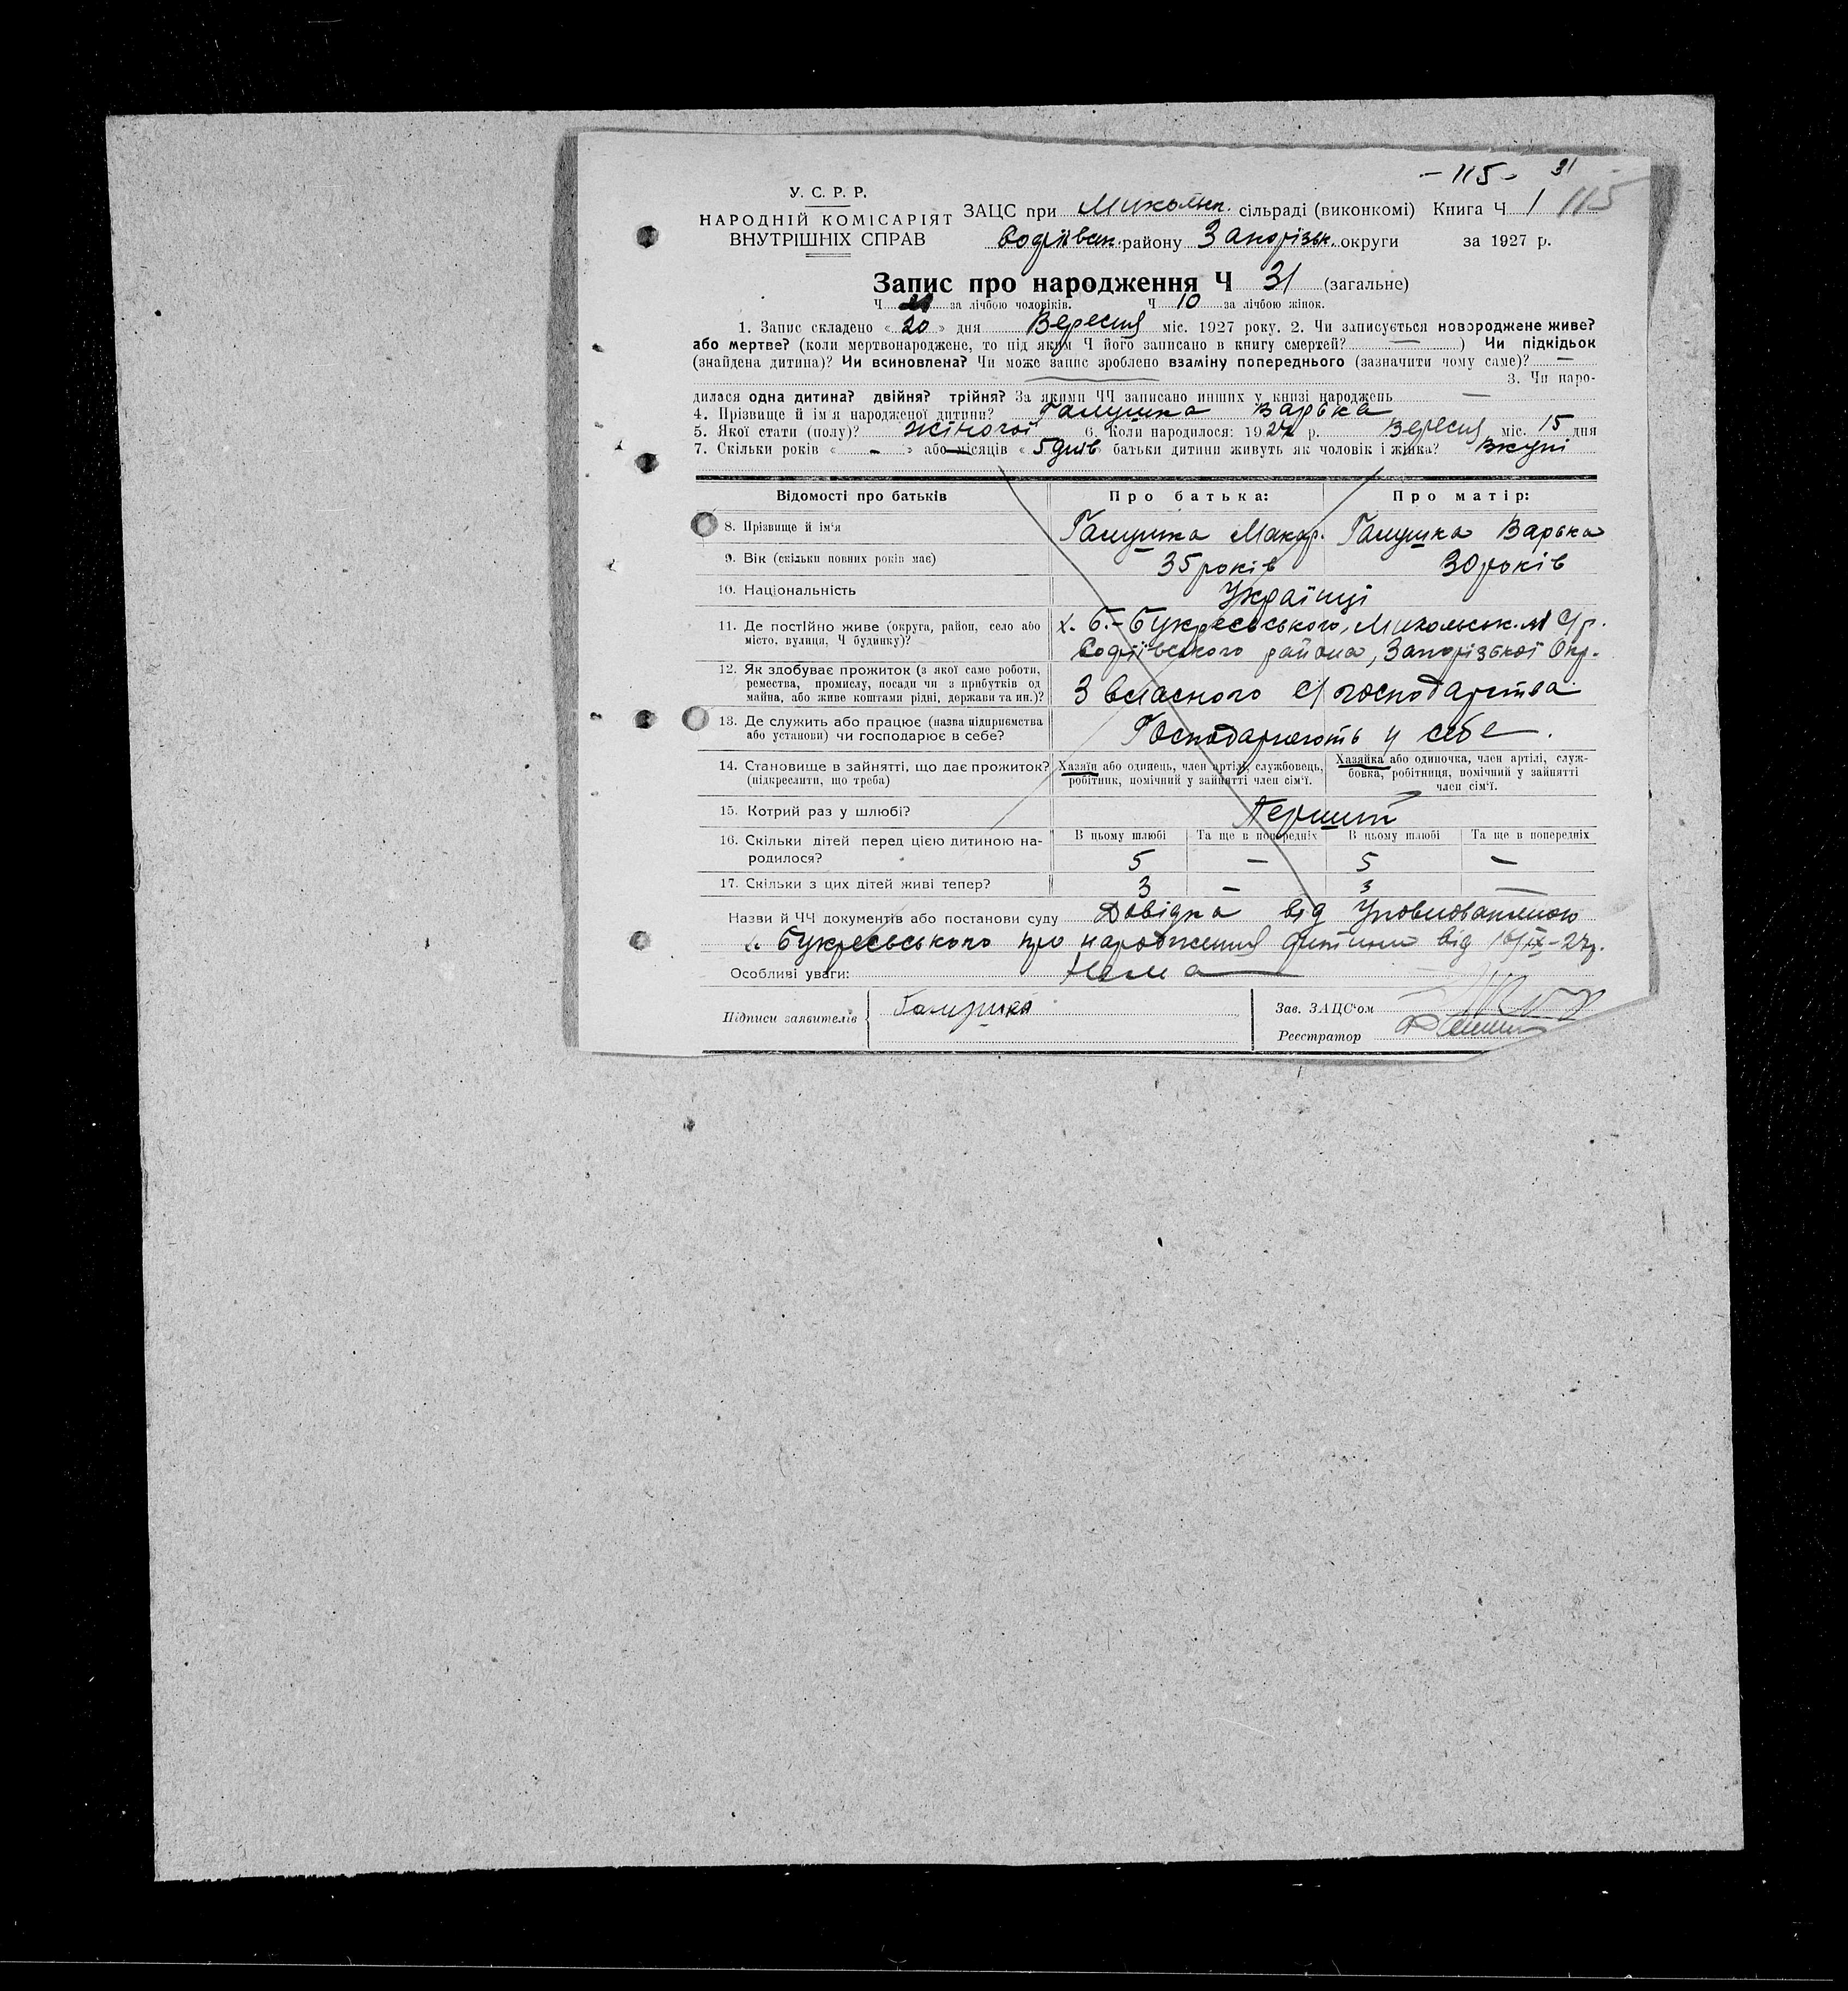 - 115 - 31
115
У. С. Р. Р.
НАРОДНІЙ КОМІСАРІЯТ
ВНУТРІШНІХ СПРАВ
ЗАЦС при Микольск. сільраді (виконкомі) Книга Ч 1
Софіївськ. району Запорізьк. округи за 1927 р.
Запис про народження Ч 31 (загальне)
Ч за лічбою чоловіків. Ч 10 за лічбою жінок.
1. Запис складено « 20 » дня Вересня міс. 1927 року. 2. Чи записується новороджене живе?
або мертве? (коли мертвонароджене, то під яким Ч його записано в книгу смертей? — ) Чи підкідьок
(знайдена дитина)? Чи всиновлена? Чи може запис зроблено взаміну попереднього (зазначити чому саме)? —
3. Чи наро-
дилася одна дитина? двійня? трійня? За якими ЧЧ записано инших у книзі народжень —
4. Прізвище й ім'я народженої дитини? Галушка Варька
5. Якої стати (полу)? жіночої 6. Коли народилося: 1927 р. Вересня міс. 15 дня
7. Скільки років « - » або місяців « 5 днів » батьки дитини живуть як чоловік і жінка? вкупі
Відомості про батьків Про батька: Про матір:
8. Прізвище й ім'я Галушка Макар. Галушка Варька
9. Вік (скільки повних років має) 35 років 30 років
10. Національність Українці
11. Де постійно живе (округа, район, село або
місто, вулиця, Ч будинку)?
х. Б.-Букреєвського, Микольськ.
Софіївського района, Запорізької Окр.
12. Як здобуває прожиток (з якої саме роботи,
ремества, промислу, посади чи з прибутків од
майна, або живе коштами рідні, держави та ин.)?
З власного с/господарства
13. Де служить або працює (назва підприємства
або установи) чи господарює в себе?
Господарюють у себе.
14. Становище в зайнятті, що дає прожиток?
(підкреслити, що треба)
Хазяїн або одинець, член артілі, службовець,
робітник, помічний у зайнятті член сім'ї.
Хазяйка або одиночка, член артілі, служ-
бовка, робітниця, помічний у зайнятті
член сім'ї.
15. Котрий раз у шлюбі? Перший
В цьому шлюбі Та ще в попередніх В цьому шлюбі Та ще в попередніх
16. Скільки дітей перед цією дитиною на-
родилося?
5 — 5 —
17. Скільки з цих дітей живі тепер? 3 — 3 —
Назви й ЧЧ документів або постанови суду Довідка від Уповноваженого
х. Букреєвського про народження дитини від 16/IX-27р.
Особливі уваги: Нема
Підписи заявителів Галушка
Зав. ЗАЦС'ом
Реєстратор